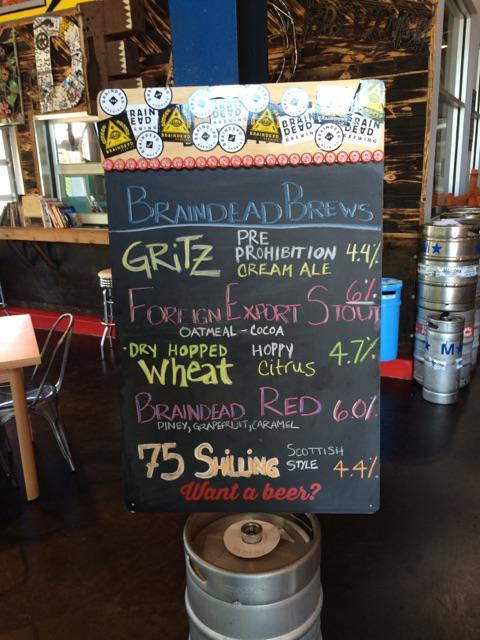 BRAIN DEAD BREWING
BRAINDEAD
BRAINDEAD
BRAIN DEAD BREWING
BRAIN DEAD BREWING
BRAINDEAD BREWS
GRITZ PRE PROHIBITION CREAM ALE 4.4%
FOREIGN EXPORT STOUT 6%
OATMEAL - COCOA
DRY HOPPED wheat HOPPY Citrus 4.7%
BRAINDEAD RED 6.0%
PINEY, GRAPEFRUIT, CARAMEL
75 SHILLING SCOTTISH STYLE 4.4%
Want a beer?
M
M